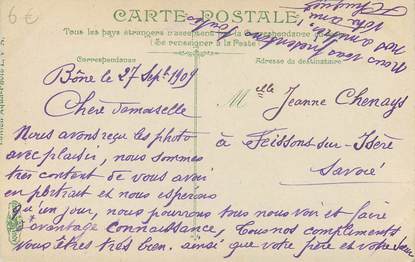 6€
CARTE POSTALE
Tous les pays étrangers n'acceptent pas la correspondance
(Se renseigner à la Poste)
Correspondance
Adresse du destinataire
Bône le 27 Sept 1909
Chère Damoiselle
Nous avons reçu les photo
avec plaisir, nous sommes
très content de vous avoir
en portrait et nous espérons
qu'un jour, nous pourrons tous nous voir et faire
d'avantage connaissance, Tous nos compliments
vous êtes très bien. ainsi que votre père et votre
Melle Jeanne Chenays
à Feissons-sur-Isère
Savoie
Nous vous
nos amitiés